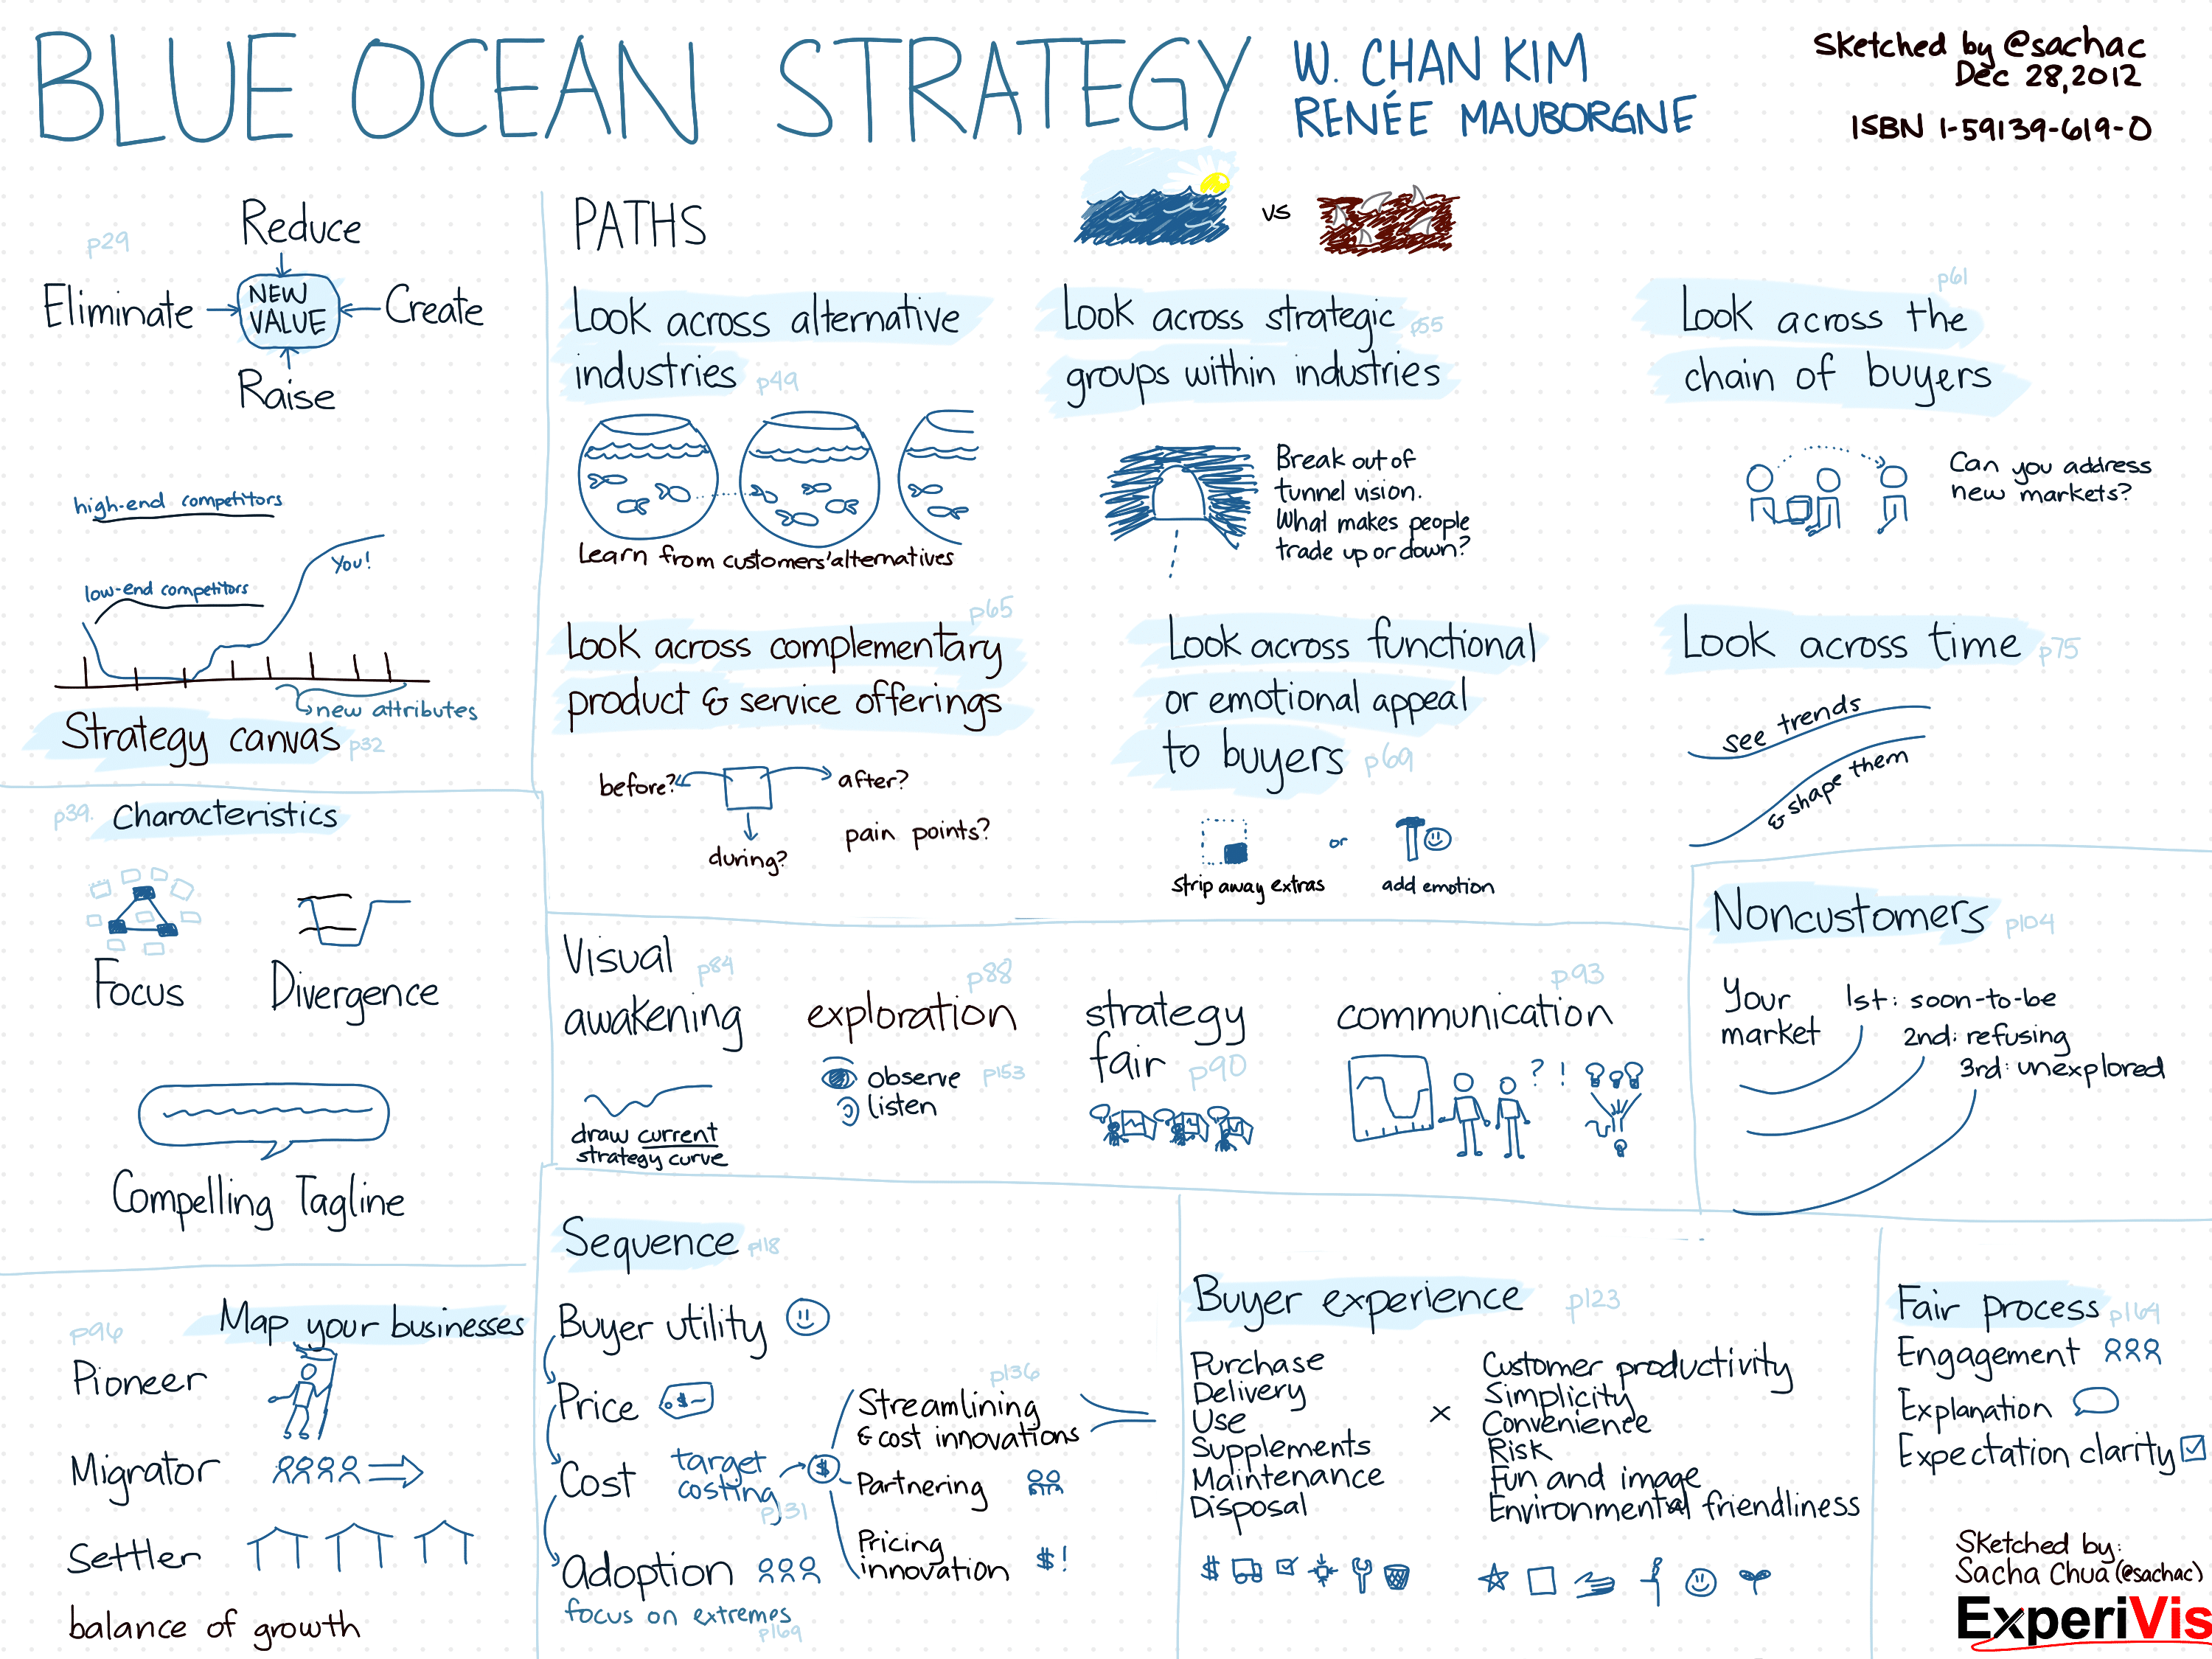 BLUE OCEAN STRATEGY
W. CHAN KIM
RENÉE MAUBORGNE
Sketched by @sachac
Dec 28, 2012
ISBN 1-59139-619-0
p29
Reduce
Eliminate
NEW
VALUE
Create
Raise
high-end competitors
You!
low-end competitors
new attributes
Strategy canvas p32
p39. Characteristics
Focus
Divergence
Compelling Tagline
p96
Map your businesses
Pioneer
Migrator
Settler
balance of growth
PATHS
vs
Look across alternative
industries p49
Learn from customers' alternatives
Look across strategic p55
groups within industries
Break out of
tunnel vision.
What makes people
trade up or down?
p61
Look across the
chain of buyers
Can you address
new markets?
p65
Look across complementary
product & service offerings
before?
after?
during?
pain points?
Look across functional
or emotional appeal
to buyers p69
strip away extras
or
add emotion
Look across time p75
see trends
& shape them
Visual
awakening p84
draw current
strategy curve
p88
exploration
observe p153
listen
strategy
fair p90
p93
communication
? !
Noncustomers p104
Your
market
1st: soon-to-be
2nd: refusing
3rd: unexplored
Sequence p118
Buyer utility
Price
$-
Cost
target
costing
p131
$
Adoption
focus on extremes
p169
p136
Streamlining
& cost innovations
Partnering
Pricing
innovation
$!
Buyer experience p123
Purchase
Delivery
Use
Supplements
Maintenance
Disposal
x
Customer productivity
Simplicity
Convenience
Risk
Fun and image
Environmental friendliness
$
Fair process p164
Engagement
Explanation
Expectation clarity
Sketched by:
Sacha Chua (@sachac)
ExperiVis